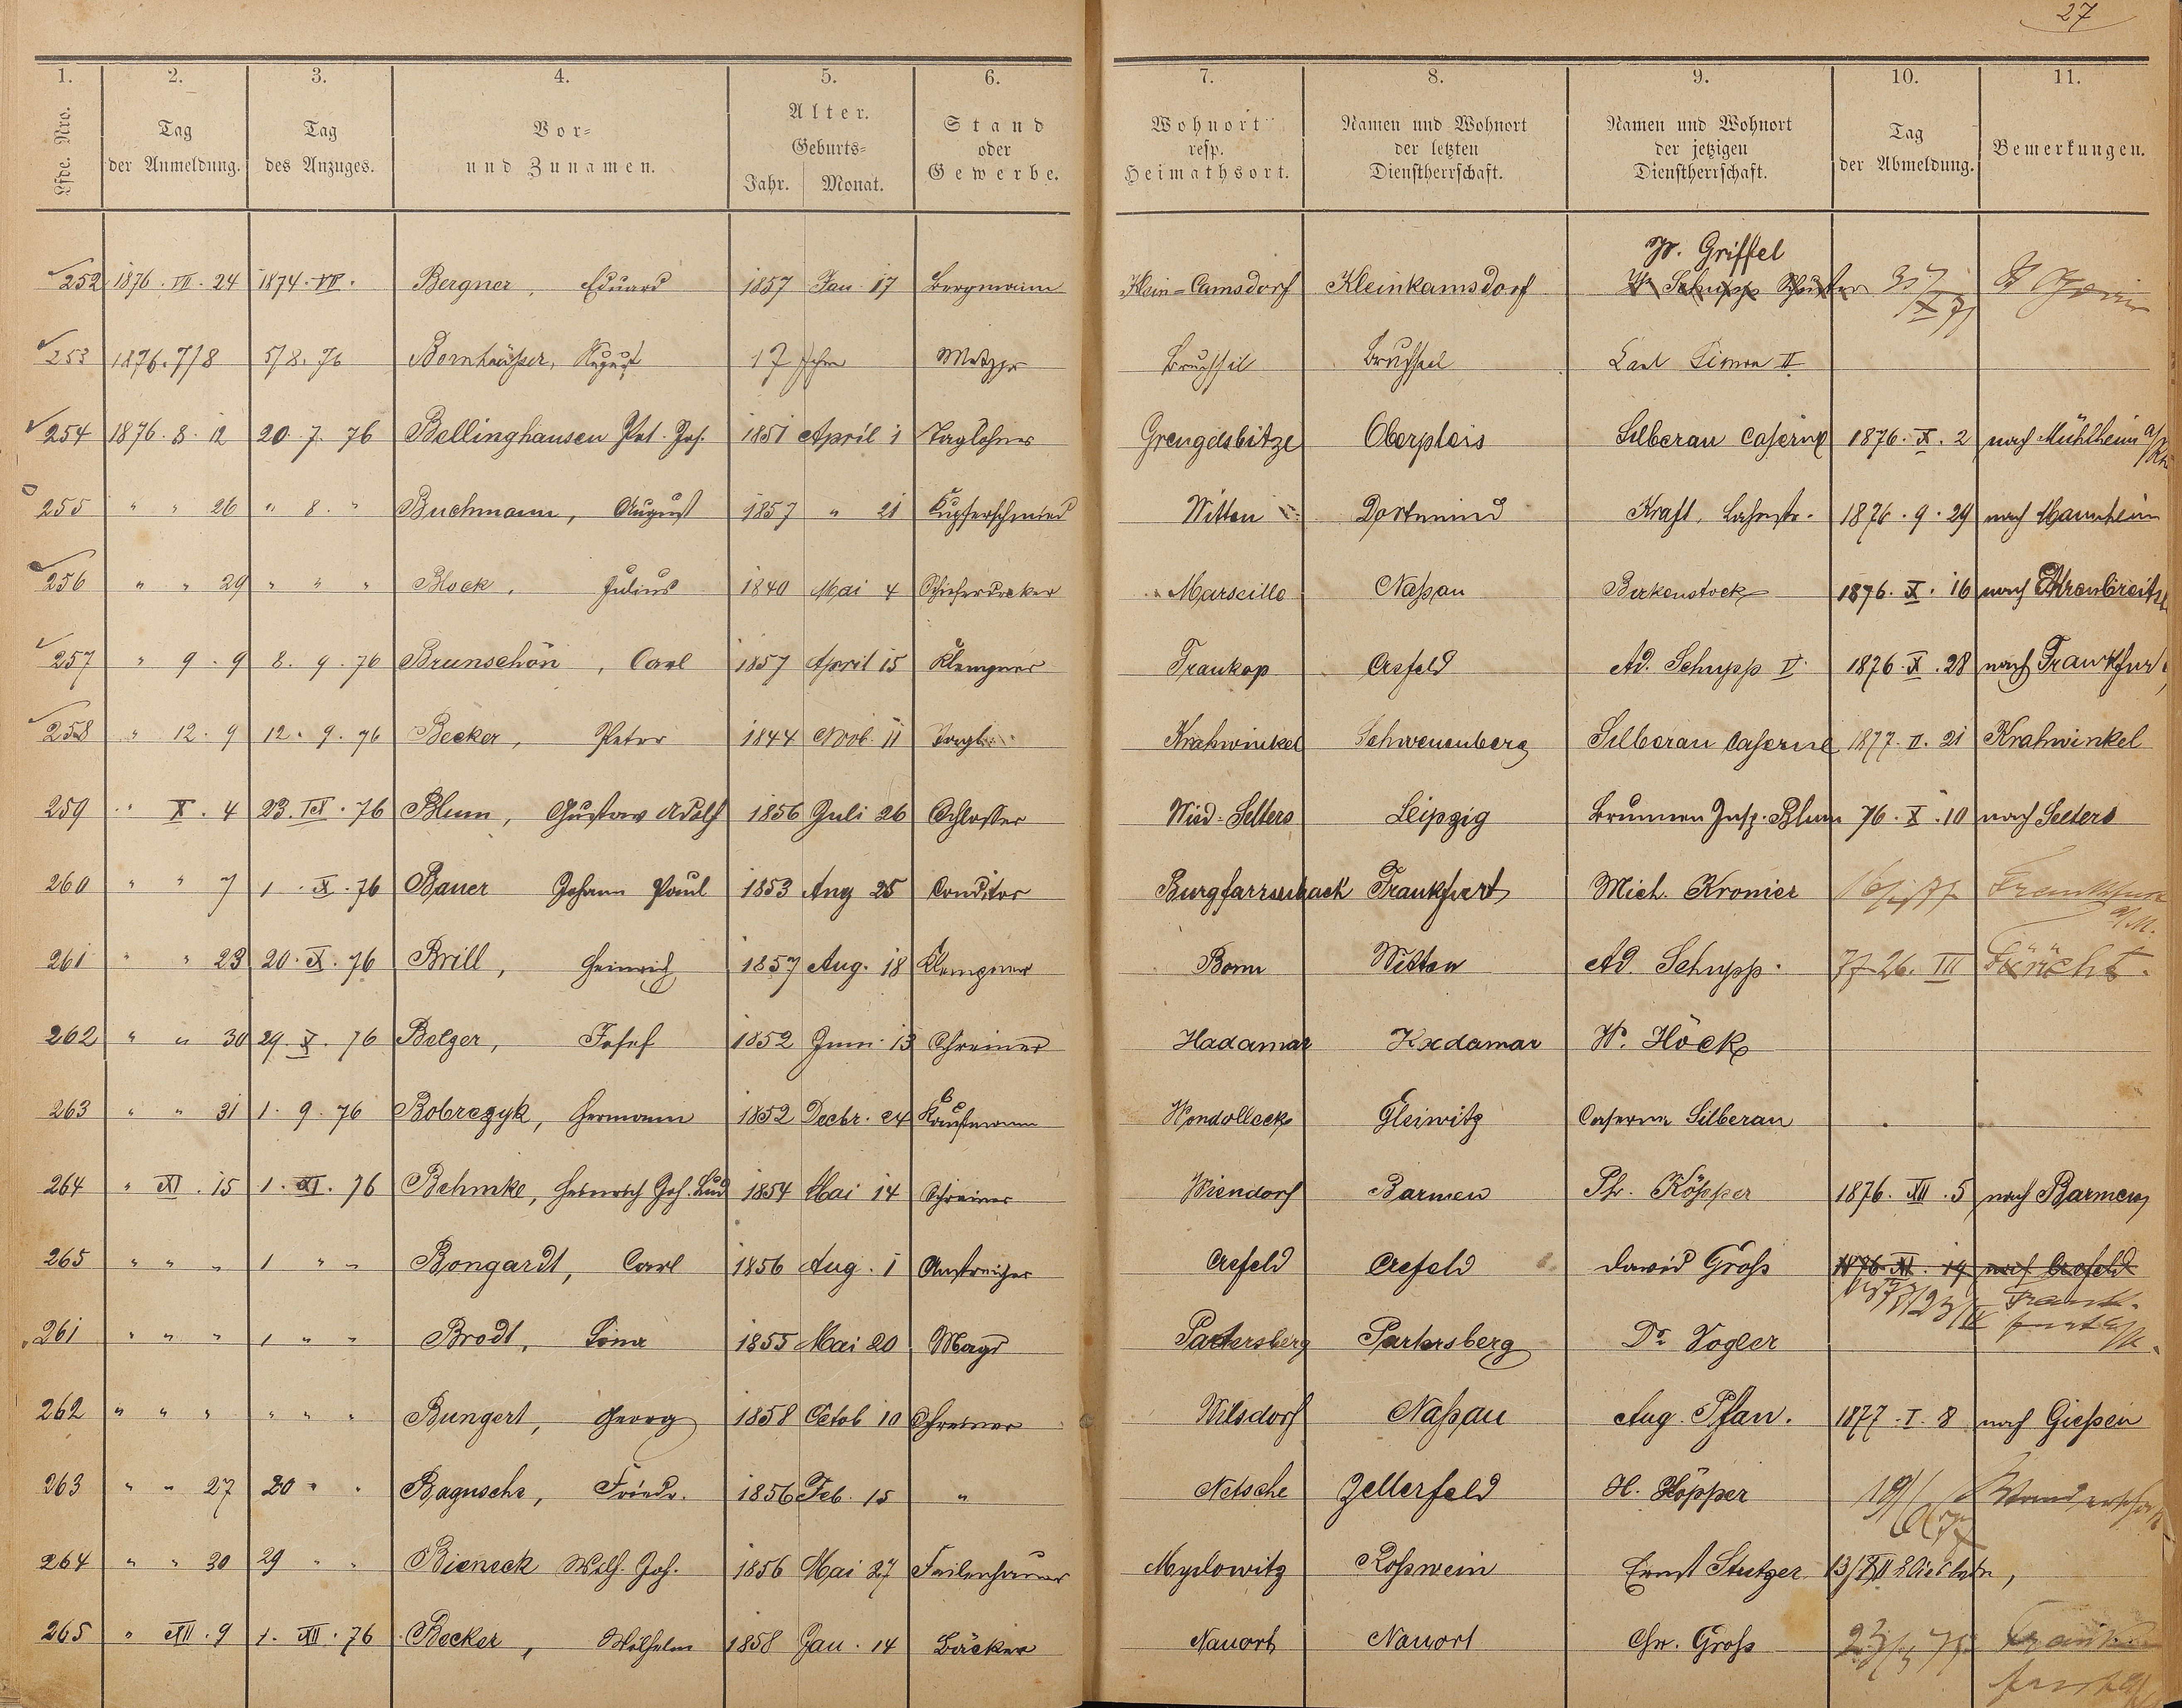 27
1. 2. 3. 4. 5. 6. 7. 8. 9. 10. 11.
Lfde. Nro. Tag der Anmeldung. Tag des Anzuges. Vor- und Zunamen. Alter. Geburts- Jahr. Monat. Stand oder Gewerbe. Wohnort resp. Heimathsort. Namen und Wohnort der letzten Dienstherrschaft. Namen und Wohnort der jetzigen Dienstherrschaft. Tag der Abmeldung. Bemerkungen.
W. Griffel
252 1876. VII. 24 1874. VII. Bergner, Eduard 1857 Jan. 17 Bergmann Klein=Camsdorf Kleinkamsdorf
253 1876. 7/8 5/8. 76 Bornhäußer, August 17 Jahre Metzger Bruchsal Bruchsal Carl Simon II
254 1876. 8. 12 20. 7. 76 Bellinghausen Pet. Jos. 1851 April 1 Taglöhner Grengelsbitze Oberpleis Silberau Caserne 1876. X. 2 nach Mühlheim a/Rh
255 " " 26 " 8. " Buchmann, August 1857 " 21 Kupferschmied Witten Dortmund Kraft, Lahnstr. 1876. 9. 29 nach Mannheim
256 " " 29 " " " Block, Julius 1840 Mai 4 Schieferdecker Marseille Naßau Birkenstock 1876. X. 16 nach Ehrenbreitst
257 " 9. 9 8. 9. 76 Brunschön, Carl 1857 April 15 Klempner Traukop Crefeld Ad. Schupp II 1876. X. 28 nach Frankfurt
258 " 12. 9 12. 9. 76 Becker, Peter 1844 Nov. 11 Tagl. Krahwinkel Schwenenberg Silberau Caserne 1877. II. 21 Krahwinkel
259 " X. 4 23. IX. 76 Blum, Gustav Adolf 1856 Juli 26 Schlosser Nied=Selters Leipzig Brunnen Insp. Blum 76. X. 10 nach Selters
260 " " 7 1. X. 76 Bauer Johann Paul 1853 Aug 25 Conditor Burgfarrnbach Frankfurt Mich. Kronier Frankfurt a/M.
261 " " 23 20. X. 76 Brill, Heinrich 1857 Aug. 18 Klempner Bonn Witten Ad. Schupp. 77 26. III
262 " " 30 29. X. 76 Belger, Josef 1852 Juni 13 Schreiner Hadamar Hadamar W. Höck
263 " " 31 1. 9. 76 Bobrezyk, Hermann 1852 Decbr. 24 Kaufmann Wondolleck Gleiwitz Caserne Silberau
264 " XI. 15 1. XI. 76 Behmke, Heinrich Joh. Lud 1854 Mai 14 Schreiner Wiendorf Barmen Ph. Köpper 1876. XII. 5 nach Barmen
265 " " " 1 " " Bongardt, Carl 1856 Aug. 1 Anstreicher Crefeld Crefeld David Groß 1876. XI. 19 nach Crefeld
Frank-
furt a/M.
261 " " " 1 " " Brodt, Lina 1855 Mai 20 Magd Pattersberg Pattersberg Dr. Vogler
262 " " " " " " Bungert, Georg 1858 Octob 10 Schreiner Wilsdorf Naßau Aug. Pfan. 1877. I. 8 nach Gießen
263 " " 27 20 " " Bagusche, Friedr. 1856 Feb. 15 " Netsche Zellerfeld H. Höpper 19/ Wanderschaft
264 " " 30 29 " " Bieneck Wilh. Joh. 1856 Mai 27 Feilenhauer Myslowitz Roßwein Ernst Stutzer 13/XII
265 " XII. 9 1. XII. 76 Becker, Wilhelm 1858 Jan. 14 Bäcker Nauort Nauort Chr. Groß Frank-
furt a/